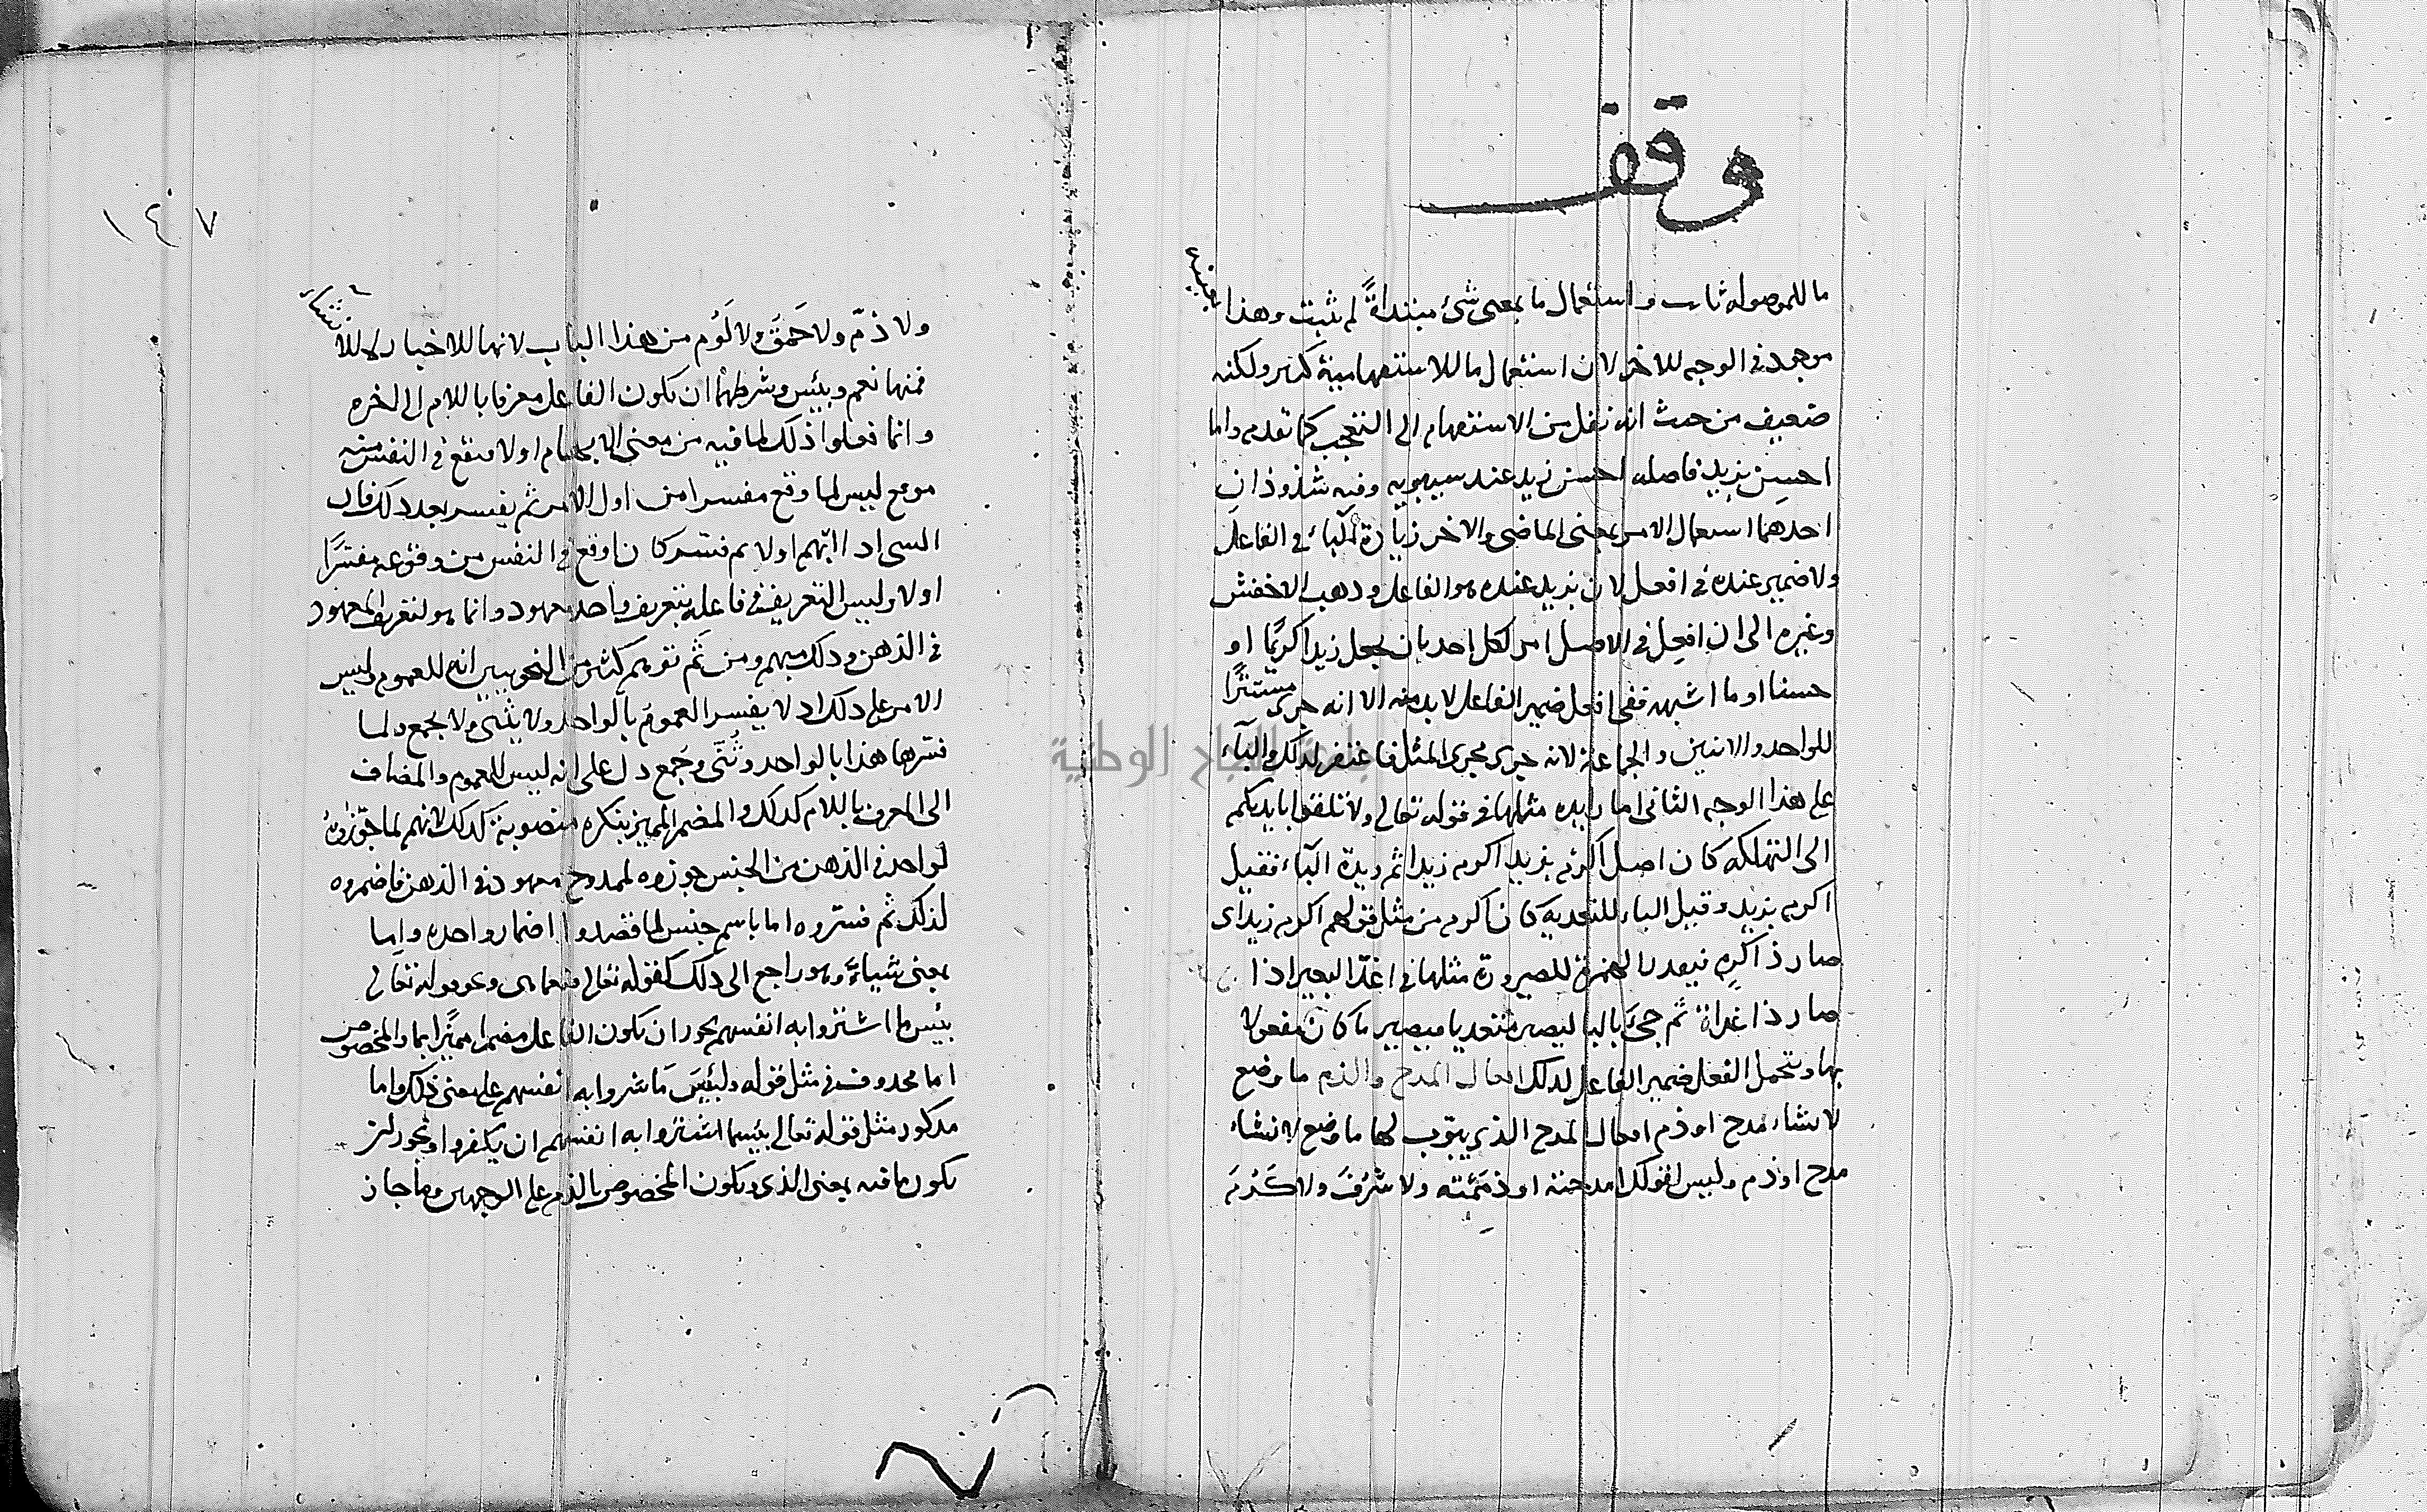 وقف
ما الموصوله ثابت واستعمال ما بمعنى شئ مبتدأةً لم يثبت وهذا بعينه
موجود في الوجه الاخر لان استعمال ما للاستفهامية كثير ولكنه
ضعيف من حيث انه نقل من الاستفهام الى التعجب كما تقدم واما
احسن بزيد فاصله احسن زيد عند سيبويه وفيه شذوذان
احدهما استعمال الامر بمعنى الماضى والاخر زيادة الباء في الفاعل
ولا ضمير عنده في افعل لان بزيد عنده هو الفاعل وذهب الاخفش
وغيره الى ان افعل في الاصل امر لكل احد بان يجعل زيدا كريما او
حسنا او ما اشبهه ففي افعل ضمير الفاعل لابد منه الا انه جرى مستترًا
للواحد والاثنين والجماعة لانه جرى مجرى المثل فاغتفر لذلك والباء
على هذا الوجه الثاني اما زايده مثلها في قوله تعالى ولا تلقوا بايديكم
الى التهلكه كان اصل اكرم بزيد اكرم زيدا ثم زيدة الباء فقيل
اكرم بزيد وقيل الباء للتعدية كان اكرم من مثل قولهم اكرم زيد اى
صار ذا كرم فبعد الهمزة للصيرورة مثلها في اغدّ البعير اذا
صار ذا غداة ثم جئ بالبا ليصير متعديا فيصير ما كان مفعولا
بها وتحمل الفعل ضمير الفاعل لذلك افعال المدح والذم ما وضع
لانشاء مدح او ذم افعال المدح الذي يبوّب لها ما وضع لانشاء
مدح او ذم وليس قولك مدحته او ذممته ولا شرُف ولا كرُم
١٤٧
ولا ذمّ ولا حمق ولا لوُم من هذا الباب لانها للاخبار لا للانشاء
فمنها نعم وبئس وشرطهما ان يكون الفاعل معرفا باللام الى اخره
وانما فعلوا ذلك لما فيه من معنى الابهام اولا فيقع في النفس منه
موقع ليس لما وقع مفسرا من اول الامر ثم يفسر بعد ذلك فان
الشى اذا ابهم اولا ثم فسّر كان اوقع في النفس من وقوعه مفسّرًا
اولا وليس التعريف في فاعله بتعريف واحد معهود وانما هو لتعريف المعهود
في الذهن وذلك مبهم ومن ثَم توهم كثير من النحويين انه للعموم وليس
الامر على ذلك اذ لا يفسر العموم بالواحد ولا يثنى ولا يجمع ولما
فسّرها هذا بالواحد وثُنّى وجُمع دل على انه ليس للعموم والمضاف
الى المعرف باللام كذلك والمضمر المميز بنكره منصوبة كذلك لانهم لما جوّزوه
لواحد في الذهن من الجنس جوزوه لممدوح معهود في الذهن فاضمروه
لذلك ثم فسّروه اما باسم جنس لما قصدوا اضمار واحده واما
بمعنى شياء وهو راجع الى ذلك كقوله تعالى فنعما هى ونحو قوله تعالى
بئس ما اشتروا به انفسهم يجوز ان يكون الفاعل مضمرا مميّزا بما والمخصوص
اما محذوف في مثل قوله ولبئسَ مَا شروا به انفسهم على معنى ذلك واما
مذكور مثل قوله تعالى بئسما اشتروا به انفسهم ان يكفروا ويجوز ان
يكون ما فيه بمعنى الذي ويكون المخصوص بالذم على الوجهين وما جاز
جامعة النجاح الوطنية